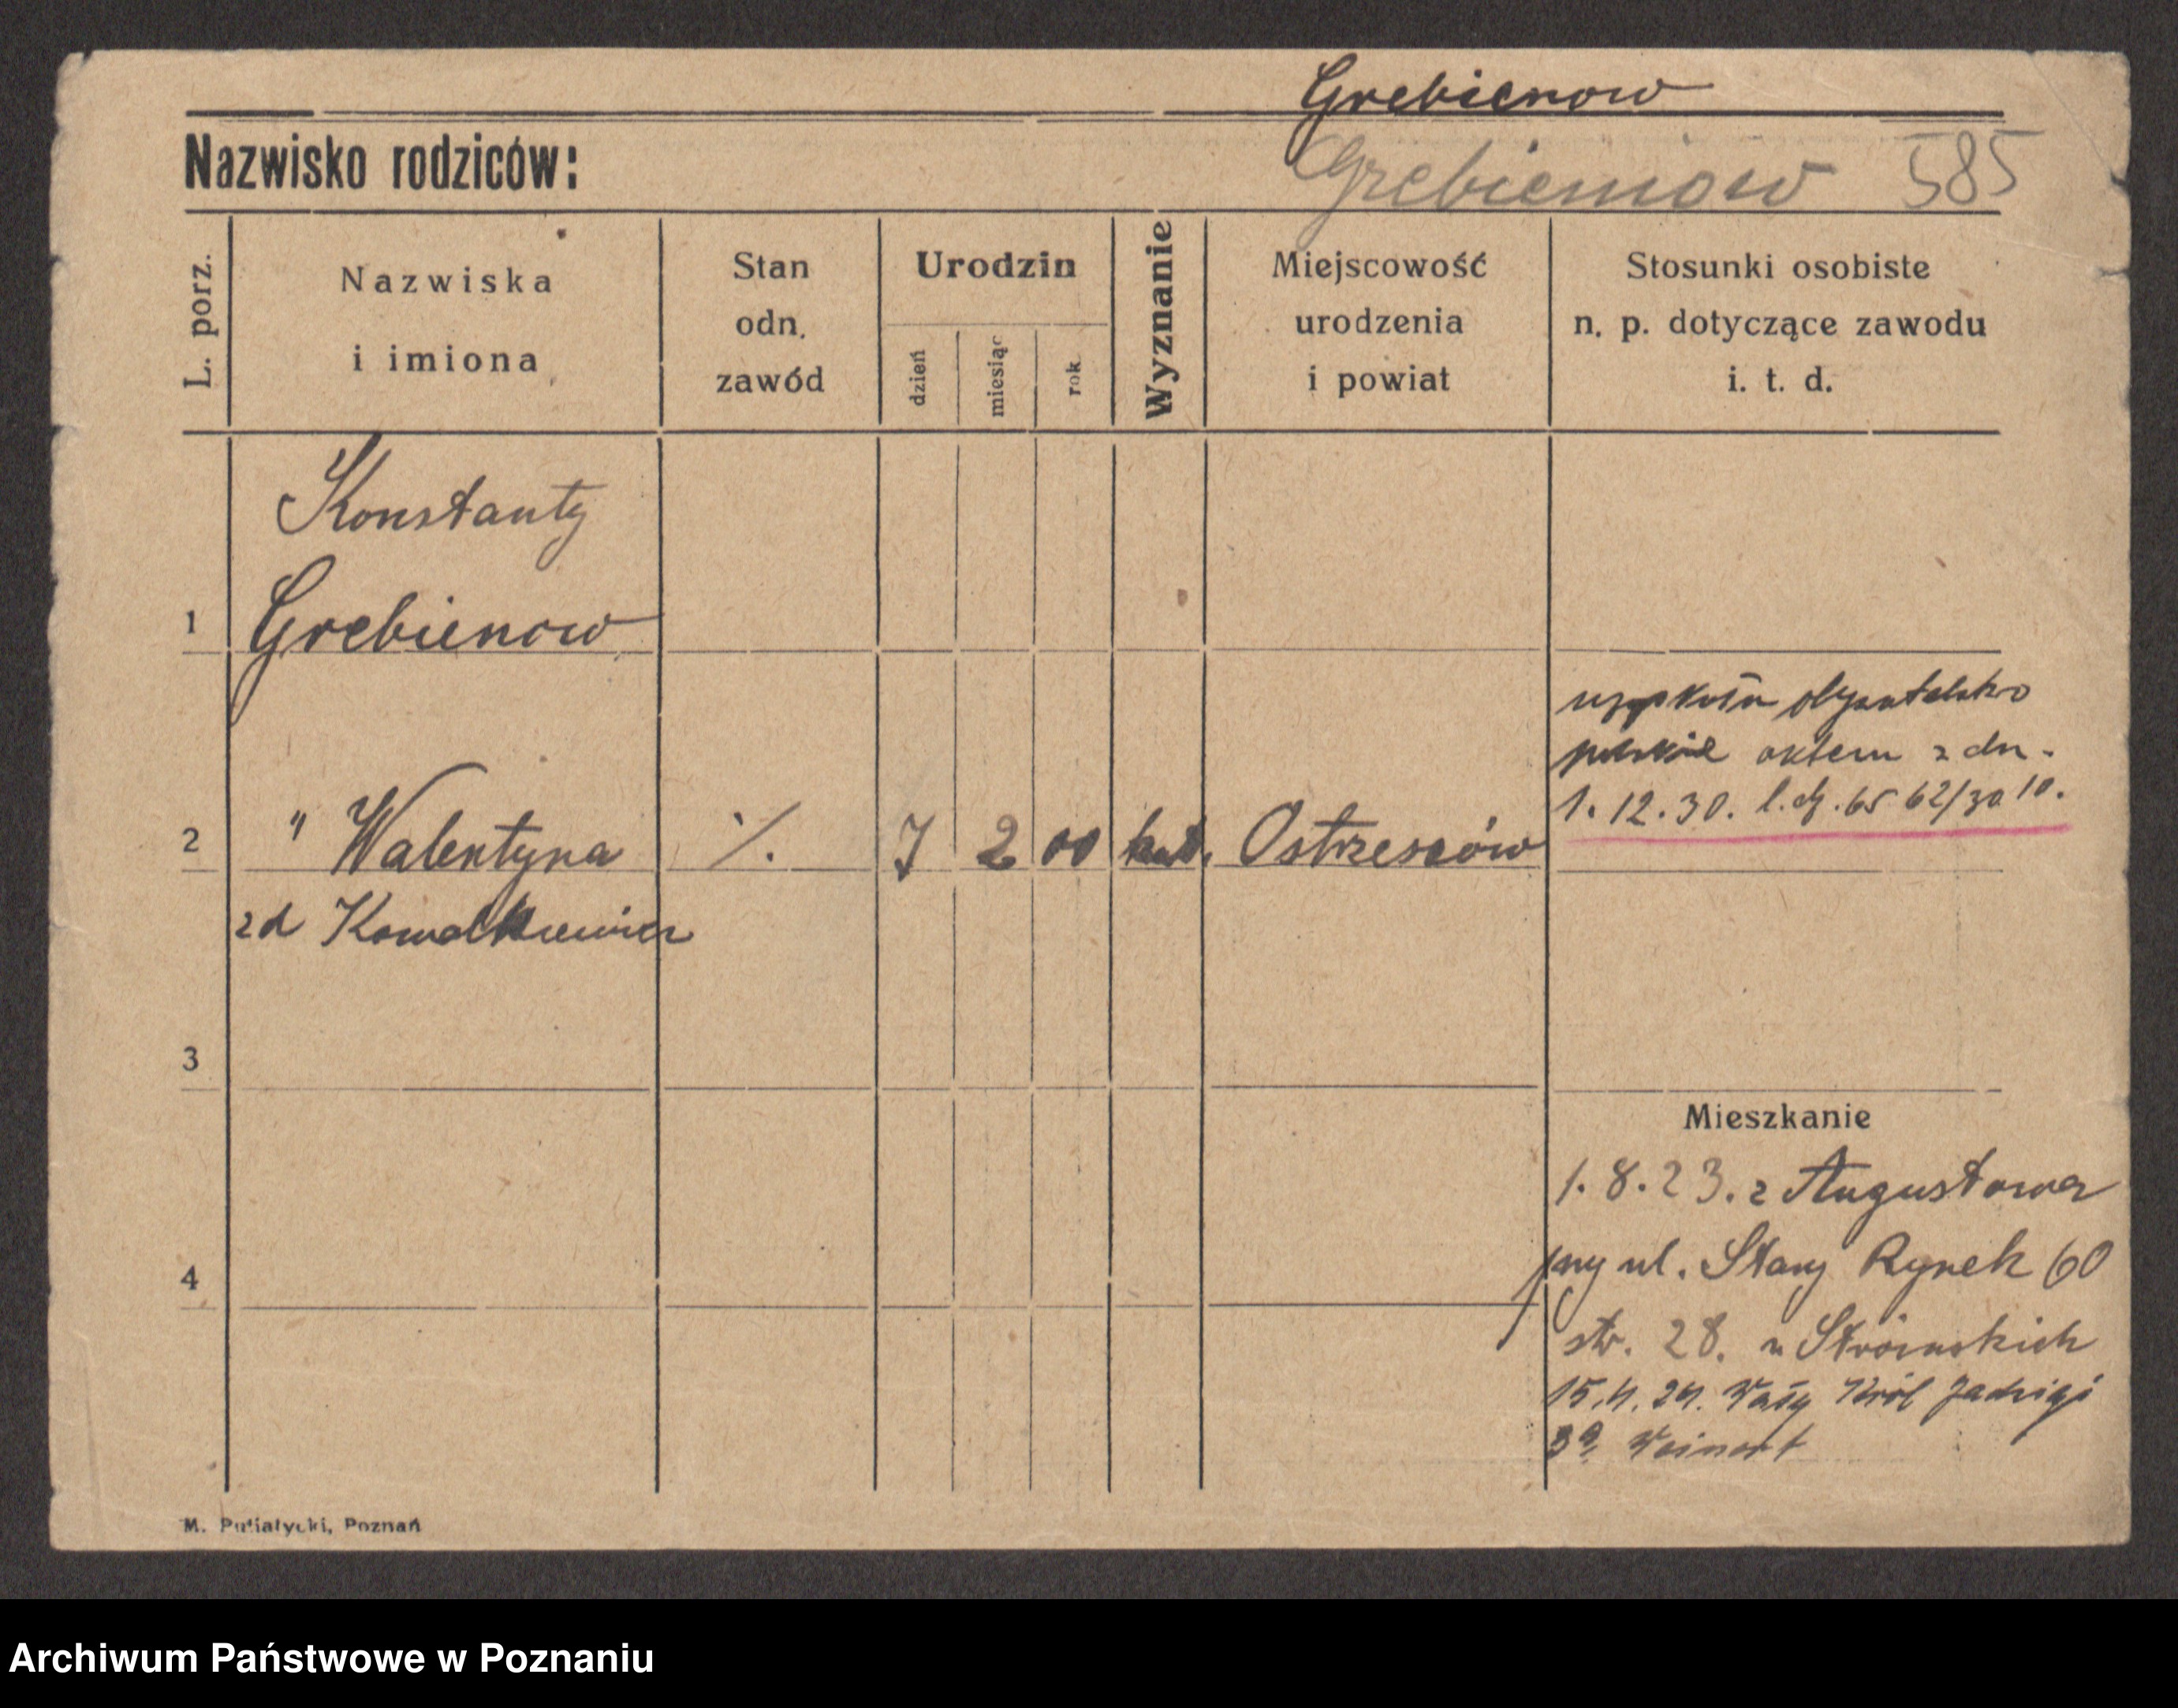 Grebienow
Nazwisko rodziców:
Grebieniow 585
L. porz.
Nazwiska
i imiona
Stan
odn.
zawód
Urodzin
dzień
miesiąc
rok
Wyznanie
Miejscowość
urodzenia
i powiat
Stosunki osobiste
n. p. dotyczące zawodu
i. t. d.
Konstanty
1 Grebienow
obywatelstwo
polskie aktem z dn.
1. 12. 30. l. dz. 6562/30 10.
2 " Walentyna ./. 7 2 00 kat. Ostrzeszów
zd Kowalkiewicz
3
Mieszkanie
1. 8. 23. z Augustowa
4
przy ul. Stary Rynek 60
str. 28. u Stroinskich
15.4.24. Wały Król Jadwigi
Weinert
M. Putiatycki, Poznań
Archiwum Państwowe w Poznaniu